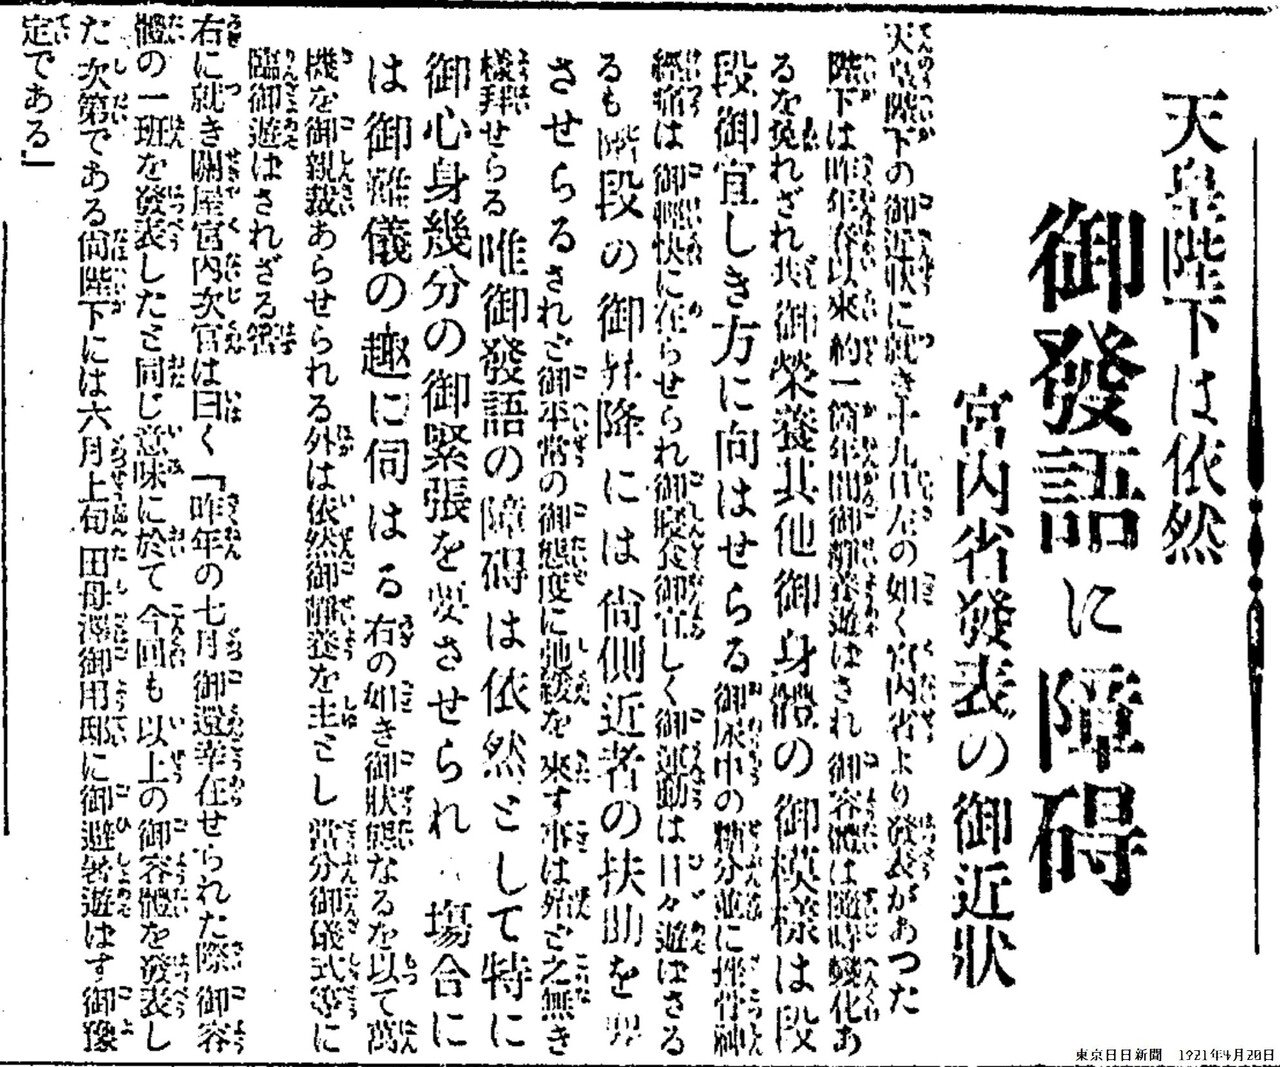 天皇陛下は依然
御發語に障碍
宮内省發表の御近狀
天皇陛下の御近狀に就き十九日左の如く宮内省より發表があつた
陛下は昨年春以來約一箇年間御靜養遊はされ御容體は隨時變化あ
るを免れざれ共御榮養其他御身體の御模樣は段
段御宜しき方に向はせらる御尿中の糖分並に坐骨神
經痛は御輕快に在らせられ御寢食御宜しく御運動は日々遊はさる
るも階段の御昇降には尙側近者の扶助を
させらるされど御平常の御態度に弛緩を來す事は殆ど之無き
樣拜せらる唯御發語の障碍は依然として特に
御心身幾分の御緊張を要させられ塲合に
は御難儀の趣に伺はる右の如き御狀態なるを以て萬
機を御親裁あらせられる外は依然御靜養を主とし當分御儀式等に
臨御遊はされざる筈
右に就き關屋宮内次官は曰く「昨年の七月御還幸在せられた際御容
體の一班を發表したと同じ意味に於て今回も以上の御容體を發表し
た次第である尙陛下には六月上旬田母澤御用邸に御避暑遊はす御豫
定である」
東京日日新聞 1921年4月20日